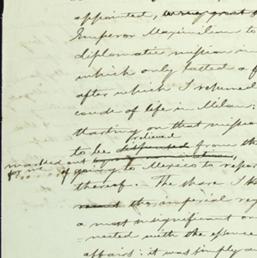 appointed,
Emperor Maximilian to
diplomatic mission in
which only lasted a f
after which I returned
course of life in Milan;
starting on that mission
relieved
to be dispensed from the
marked out by
for me of going to Mexico to repor
thereof. – The share I h
the imperial reg
a most insignificant on
nected with the
affairs: it was simply a